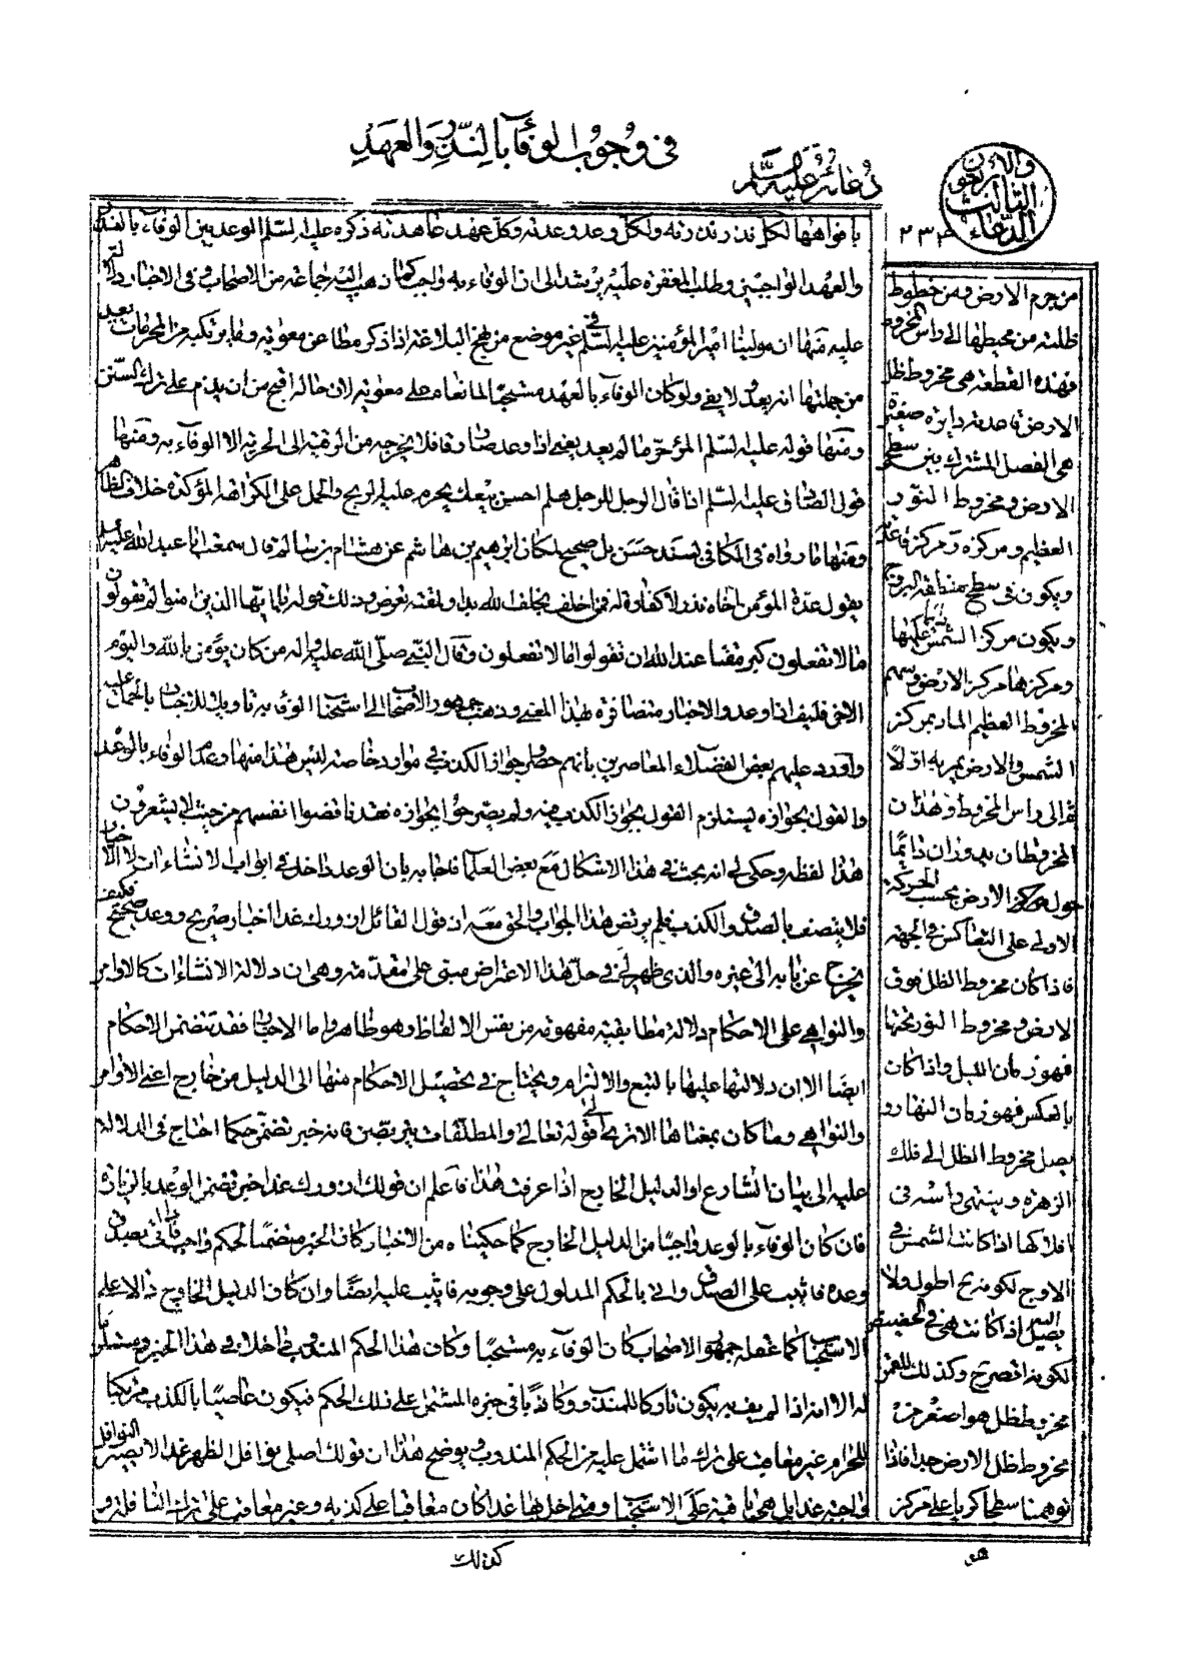 في وجوب الوفاء بالنذر والعهد
دعائه عليه السلم
والاربعون
الثالث
الدعاء
٢٣٢
بافواهها لكل نذر نذرته ولكل وعد وعدته وكل عهد عاهدته ذكره عليه السلم الوعد بين الوفاء بالنذر
والعهد الواجبين وطلب المغفرة عليه يرشد الى ان الوفاء به واجب كما ذهب اليه جماعة من الاصحاب وفي الاخبار دلالة
عليه منها ان مولينا امير المؤمنين عليه السلم في غير موضع من نهج البلاغة اذا ذكر مطاعن معوية وما يرتكبه من المحرمات يعد
من جملتها انه يعد ولا يفي ولو كان الوفاء بالعهد مستحبا لما نعاه على معوية لان حاله اقبح من ان يذم على ترك السنن
ومنها قوله عليه السلم المؤمن حر ما لم يعد يعني اذا وعد صار رقا فلا يخرجه من الرقية الى الحرية الا الوفاء به ومنها
قول الصادق عليه السلم اذا قال الرجل للرجل هلم احسن بيعك يحرم عليه الربح والحمل على الكراهة المؤكدة خلاف الظاهر
ومنها ما رواه في الكافي بسند حسن بل صحيح لمكان ابراهيم بن هاشم عن هشام بن سالم قال سمعت ابا عبد الله عليه السلم
يقول عدة المؤمن اخاه نذر لا كفارة له فمن اخلف بخلف الله بدا ولمقته تعرض وذلك قوله يا ايها الذين امنوا لم تقولون
ما لا تفعلون كبر مقتا عند الله ان تقولوا ما لا تفعلون وقال النبي صلى الله عليه واله من كان يؤمن بالله واليوم
الاخر فليف اذا وعد والاخبار متضافرة بهذا المعنى وذهب جمهور الاصحاب الى استحباب الوفاء به تاويلا لتلك الاخبار بالحمل عليه
واورد عليهم بعض الفضلاء المعاصرين بانهم حصروا جواز الكذب في موارد خاصة ليس هذا منها وعدم الوفاء بالوعد
والقول بجوازه يستلزم القول بجواز الكذب فيه ولم يصرحوا بجوازه فقد ناقضوا انفسهم من حيث لا يشعرون
هذا لفظه وحكى لي انه بحث في هذا الاشكال مع بعض العلماء فاجابه بان الوعد داخل في ابواب الانشاءات لا الاخبار
فلا يتصف بالصدق والكذب فلم يرتض هذا الجواب والحق معه ان قول القائل ازورك غدا اخبار صريح ووعد صحيح فكيف
يخرج عن بابه الى غيره والذي ظهر لي في حل هذا الاعتراض مبني على مقدمة وهي ان دلالة الانشاءات كالاوامر
والنواهي على الاحكام دلالة مطابقية مفهومة من نفس الالفاظ وهو ظاهر واما الاخبار فقد تتضمن الاحكام
ايضا الا ان دلالتها عليها بالتبع والالتزام ويحتاج في تحصيل الاحكام منها الى الدليل من خارج اعني الاوامر
والنواهي وما كان بمعناها الا ترى الى قوله تعالى والمطلقات يتربصن فانه خبر تضمن حكما احتاج في الدلالة
عليه الى بيان الشارع او الدليل الخارج اذا عرفت هذا فاعلم ان قولك ازورك غدا خبر تضمن الوعد بالزيارة
فان كان الوفاء بالوعد واجبا من الدليل الخارج كما حكيناه من الاخبار كان الخبر متضمنا لحكم واجب فاذا اتى بصدق
وعده فاثيب على الصدق والاتي بالحكم المدلول على وجوبه فاثيب عليه ايضا وان كان الدليل الخارج دالا على
الاستحباب كما فعله جمهور الاصحاب كان الوفاء به مستحبا وكان هذا الحكم المندوب داخلا في هذا الخبر ومستلزما
له الا انه اذا لم يف به يكون تاركا للمندوب وكاذبا في خبره المشتمل على ذلك الحكم فيكون عاصيا بالكذب مرتكبا
للحرام غير معاقب على ترك ما اشتمل عليه من الحكم المندوب ويوضح هذا ان قولك اصلي نوافل الظهر غدا لا يصير النوافل
واجبة عدا بل هي باقية على الاستحباب ومتى اخل بها غدا كان معاقبا على كذبه وغير معاقب على ترك النافلة و
كذلك
من جرم الارض ومن خطوط
ظلته من محيطها الى راس المخروط
فهذه القطعة هي مخروط ظل
الارض قاعدته دايرة صغيرة
هي الفصل المشترك بين سطح
الارض ومخروط النور
العظيم ومركزه ومركز قاعدته
ويكون في سطح منطقة البروج
ويكون مركز الشمس عليها
ومركزها مركز الارض وسهم
المخروط العظيم المار بمركز
الشمس والارض يمر به اولا
ثم الى راس المخروط وهذان
المخروطان يدوران دائما
حول مركز الارض بحسب الحركة
الاولى على التعاكس في الجهة
فاذا كان مخروط الظل فوق
الارض ومخروط النور تحتها
فهو زمان الليل واذا كان
بالعكس فهو زمان النهار و
يصل مخروط الظل الى فلك
الزهرة وينتهي راسه في
افلاكها اذا كانت الشمس في
الاوج لكونه ح اطول ولا
يصل اليه اذا كانت هي في الحضيض
لكونه اقصر ح وكذلك للقمر
مخروط ظل هو اصغر من
مخروط ظل الارض جدا فاذا
توهمنا سطحا كريا على مركز